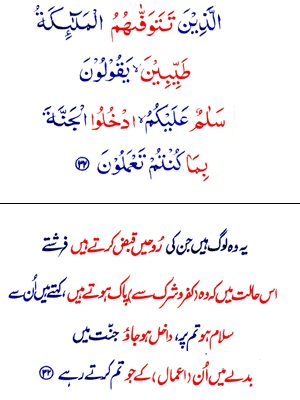 الَّذِيْنَ تَتَوَفّٰىهُمُ الْمَلٰٓئِكَةُ
طَيِّبِيْنَ ۙ يَقُوْلُوْنَ
سَلٰمٌ عَلَيْكُمُ ۙ ادْخُلُوا الْجَنَّةَ
بِمَا كُنْتُمْ تَعْمَلُوْنَ ﴿۳۲﴾
یہ وہ لوگ ہیں جن کی رُوحیں قبض کرتے ہیں فرشتے
اس حالت میں کہ وہ (کفر و شرک سے) پاک ہوتے ہیں، کہتے ہیں اُن سے
سلام ہو تم پر، داخل ہو جاؤ جنّت میں
بدلے میں اُن (اعمال) کے جو تم کرتے رہے ﴿۳۲﴾